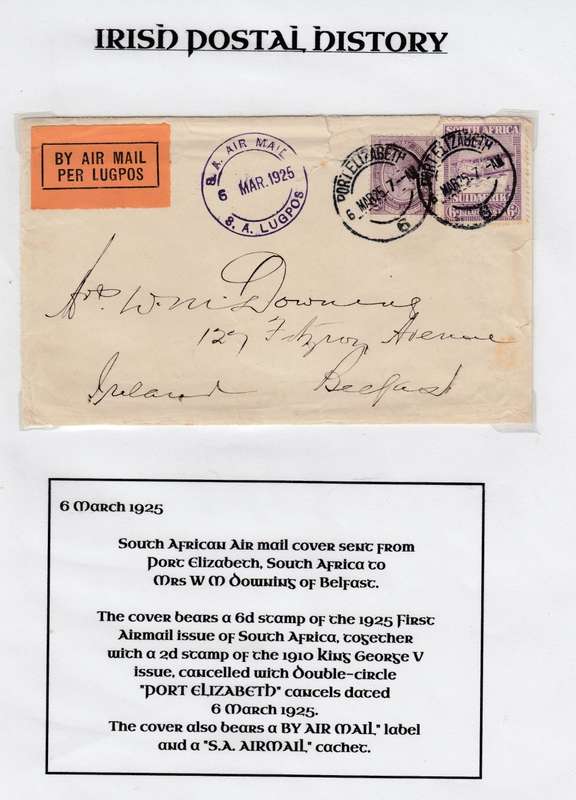 IRISH POSTAL HISTORY
BY AIR MAIL
PER LUGPOS
S. A. AIR MAIL
6 MAR.1925
S. A. LUGPOS
PORT ELIZABETH
6 MAR 25
6
PORT ELIZABETH
MAR 25
6
SOUTH AFRICA
SUIDAFRIKA
6D 6D
Mrs W. M. Downing
127 Fitzroy Avenue
Ireland Belfast
6 March 1925
South African Air mail cover sent from
Port Elizabeth, South Africa to
Mrs W M Downing of Belfast.
The cover bears a 6d stamp of the 1925 First
Airmail issue of South Africa, together
with a 2d stamp of the 1910 King George V
issue, cancelled with double-circle
"PORT ELIZABETH" cancels dated
6 March 1925.
The cover also bears a BY AIR MAIL" label
and a "S.A. AIRMAIL" cachet.